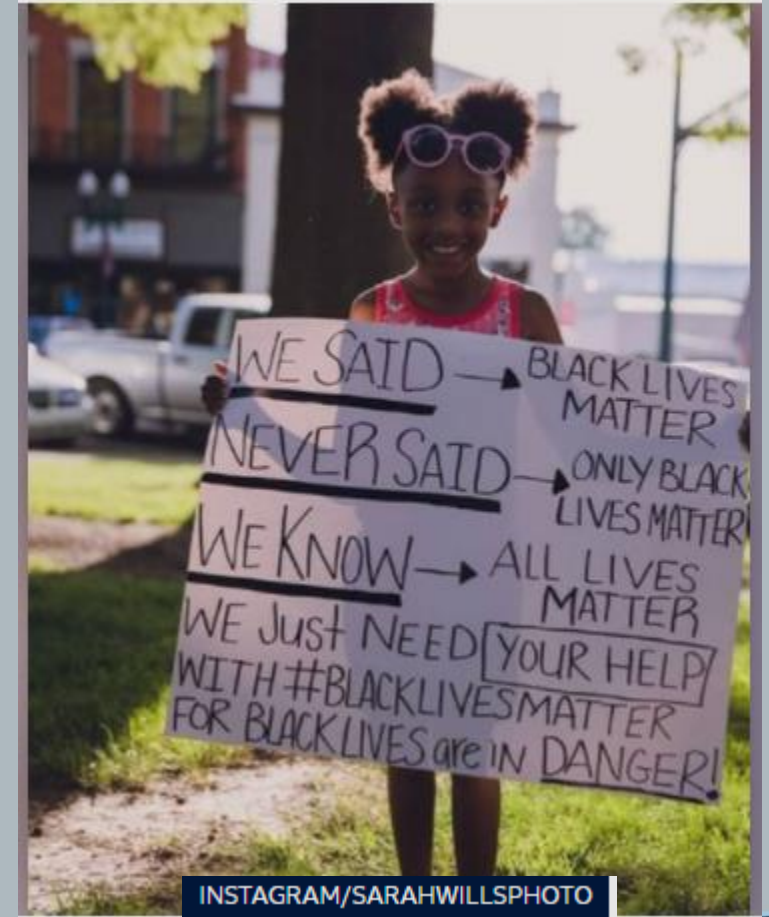 WE SAID → BLACK LIVES
MATTER
NEVER SAID → ONLY BLACK
LIVES MATTER
WE KNOW → ALL LIVES
MATTER
WE Just NEED YOUR HELP
WITH #BLACKLIVESMATTER
FOR BLACK LIVES are IN DANGER!
INSTAGRAM/SARAHWILLSPHOTO